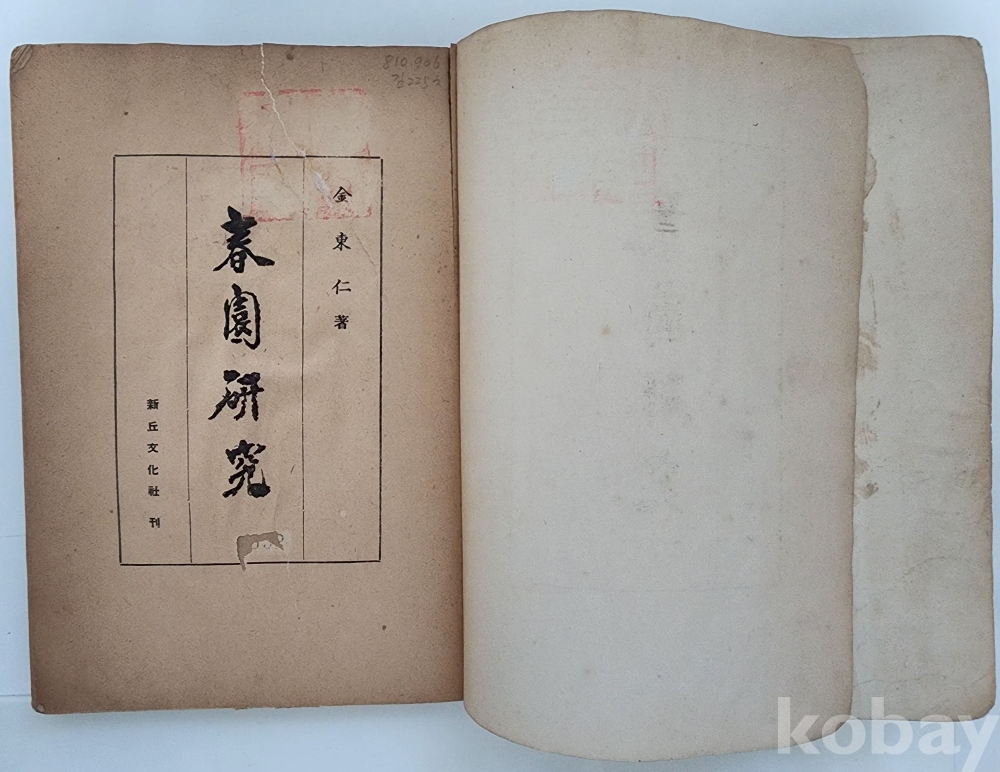 810.906
金東仁 著
春園研究
新丘文化社 刊
kobay